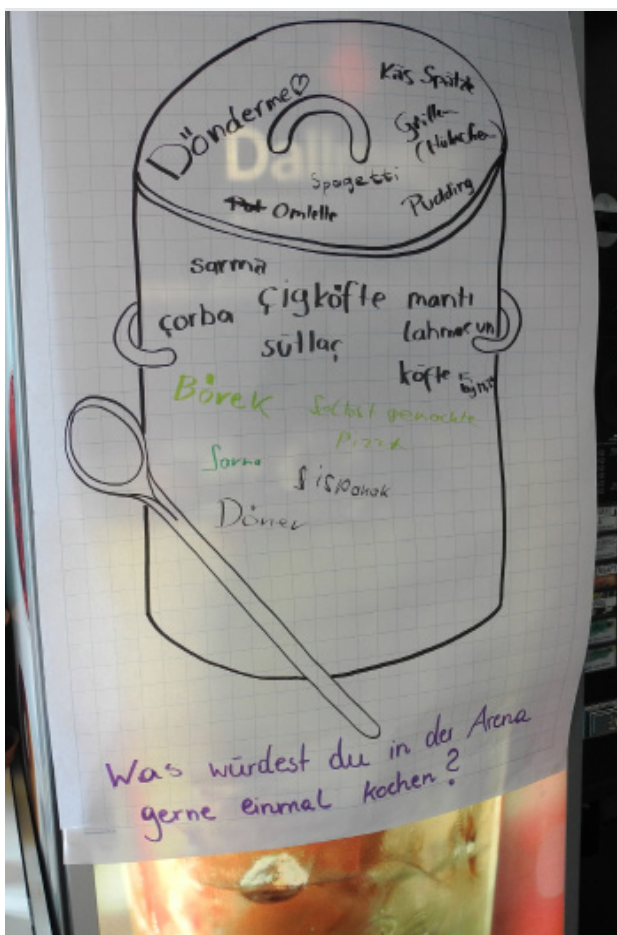 Dönderme♡
Käs Spätzle
Grillen
(Hübschen)
Spagetti
Omlelle
Pudding
sarma
çorba
çigköfte
mantı
lahmacun
sütlaç
köfte
Börek
Selbst gemachte
Pizza
Sarma
Döner
Was würdest du in der Arena
gerne einmal kochen?